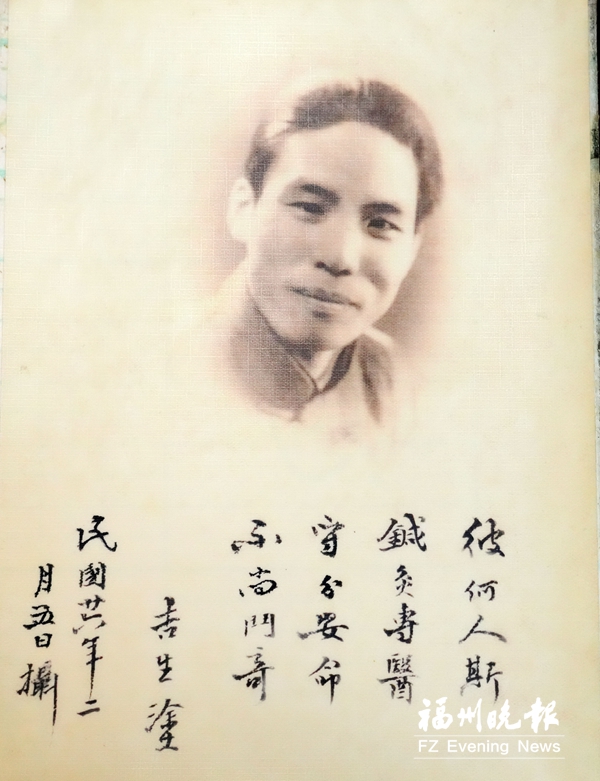 彼何人斯
鍼灸專醫
守分安命
不尚鬥奇
吉生塗
民國廿六年二
月五日攝
福州晚報
FZ Evening News